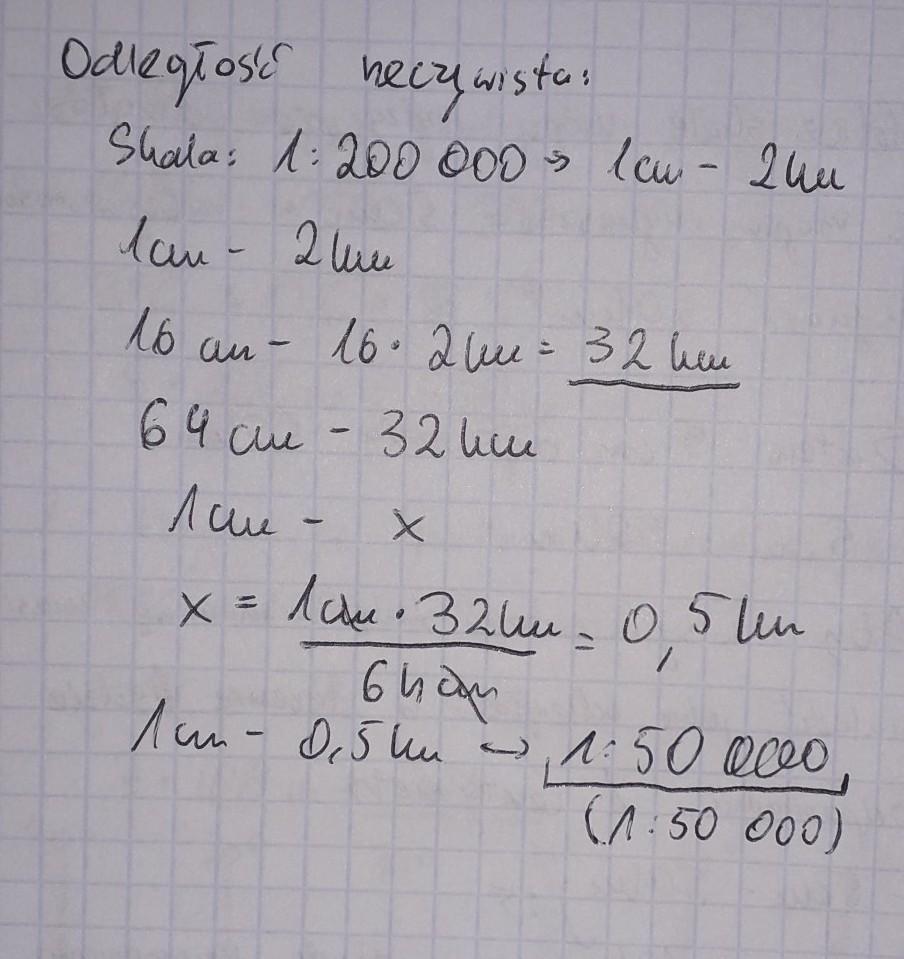 Odległość rzeczywista:
Skala: 1:200 000 → 1cm - 2km
1cm - 2km
16 cm - 16 · 2km = 32 km
64 cm - 32km
1cm - x
x = 1cm · 32km = 0,5 km
64 cm
1cm - 0,5km → 1:50 000
(1:50 000)